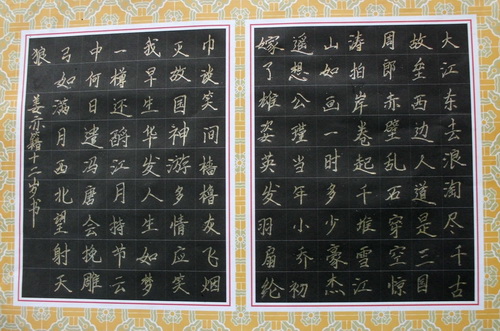 大江东去浪淘尽千古
故垒西边人道是三国
周郎赤壁乱石穿空惊
涛拍岸卷起千堆雪江
山如画一时多少豪杰
遥想公瑾当年小乔初
嫁了雄姿英发羽扇纶
巾谈笑间樯橹灰飞烟
灭故国神游多情应笑
我早生华发人生如梦
一樽还酹江月持节云
中何日遣冯唐会挽雕
弓如满月西北望射天
狼
姜亦籍十二岁书